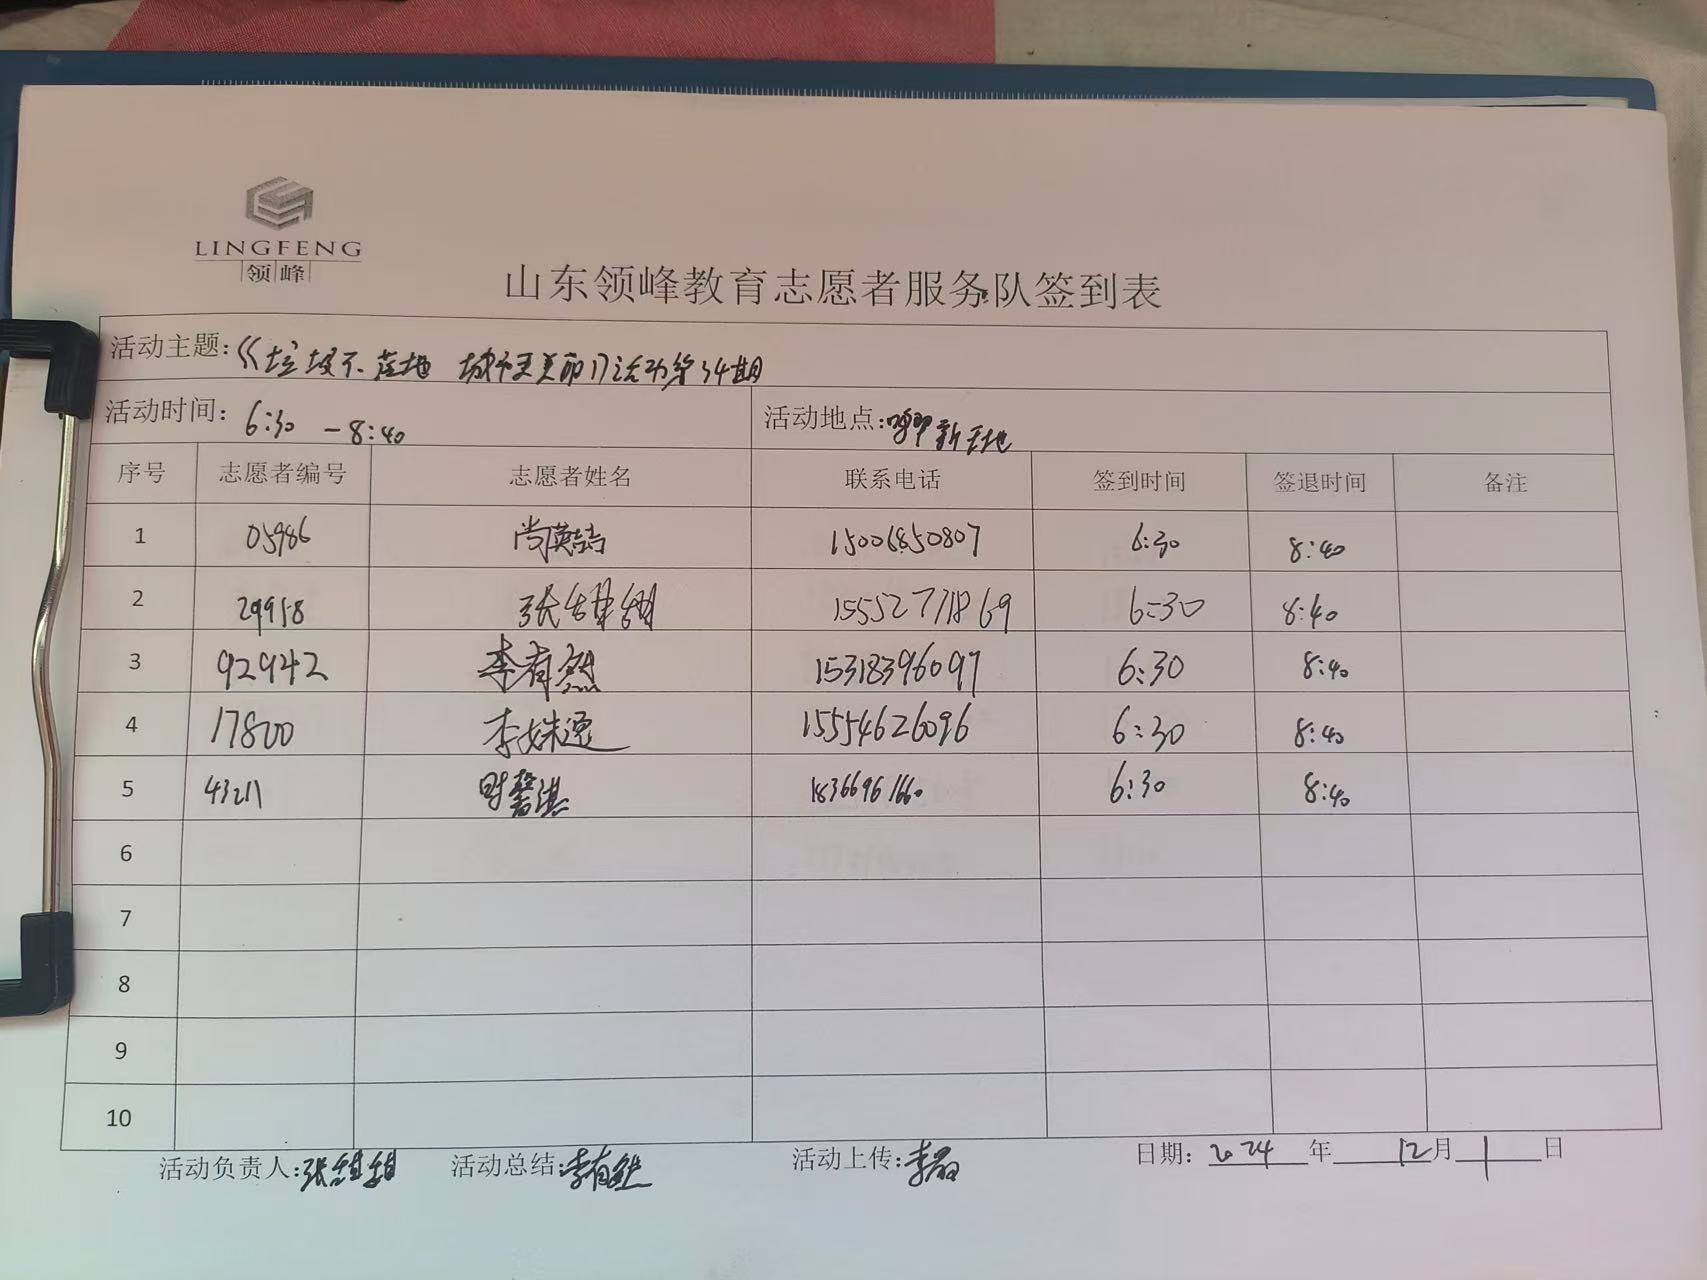 LINGFENG
领峰
山东领峰教育志愿者服务队签到表
活动主题:《垃圾不落地 城市更美丽》活动第34期
活动时间: 6:30 -8:40 活动地点: 新天地
序号 志愿者编号 志愿者姓名 联系电话 签到时间 签退时间 备注
1 05986 尚英喆 15006850807 6:30 8:40
2 29958 张 15552771869 6:30 8:40
3 92942 李有然 15318396097 6:30 8:40
4 17800 李姝逦 15554626096 6:30 8:40
5 43211 时馨淇 18366961660 6:30 8:40
6
7
8
9
10
活动负责人:张 活动总结:李有然 活动上传:李 日期: 2024 年 12月 1 日